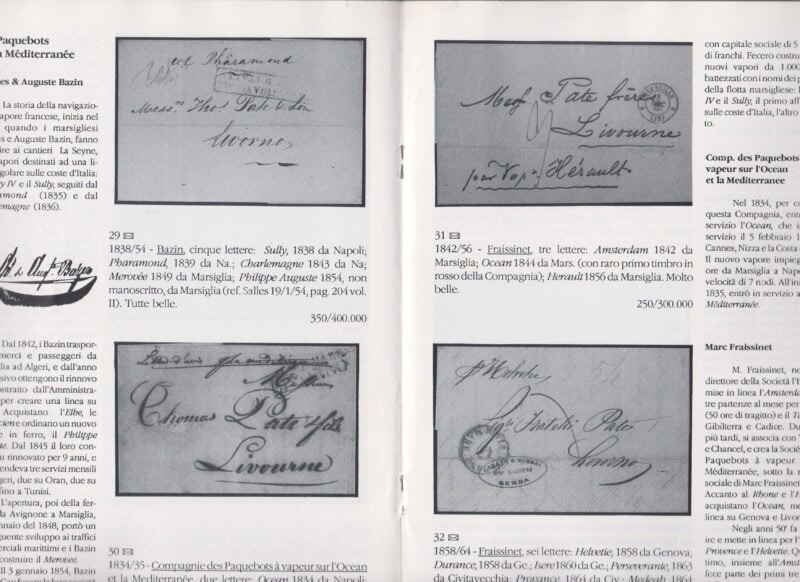 Paquebots
a Méditerranée
es & Auguste Bazin
La storia della navigazio-
apore francese, inizia nel
quando i marsigliesi
s e Auguste Bazin, fanno
ire ai cantieri La Seyne,
apori destinati ad una li-
golare sulle coste d'Italia:
y IV e il Sully, seguiti dal
amond (1835) e dal
emagne (1836).
Dal 1842, i Bazin traspor-
merci e passeggeri da
lia ad Algeri, e dall'anno
sivo ottengono il rinnovo
ontratto dall'Amministra-
per creare una linea su
Acquistano l'Elbe, le
ciene ordinano un nuovo
e in ferro, il Philippe
te. Dal 1845 il loro con-
u rinnovato per 9 anni, e
endeva tre servizi mensili
geri, due su Oran, due su
fino a Tunisi.
L'apertura, poi della fer-
da Avignone a Marsiglia,
nnaio del 1848, portò un
guente sviluppo ai traffici
erciali marittimi e i Bazin
costruire il Merovée.
Il 3 gennaio 1854, Bazin
Pharamond
Messrs Thos Pate & Son
Livorno
29
1838/54 - Bazin, cinque lettere: Sully, 1838 da Napoli;
Pharamond, 1839 da Na.; Charlemagne 1843 da Na;
Merovée 1849 da Marsiglia; Philippe Auguste 1854, non
manoscritto, da Marsiglia (ref. Salles 19/1/54, pag. 204 vol.
II). Tutte belle.
350/400.000
Thomas Pate & fils
Livourne
30
1834/35 - Compagnie des Paquebots à vapeur sur l'Ocean
et la Méditerranée, due lettere: Ocean 1834 da Napoli
Pate frères
Livourne
par Vapr Hérault
31
1842/56 - Fraissinet, tre lettere: Amsterdam 1842 da
Marsiglia; Ocean 1844 da Mars. (con raro primo timbro in
rosso della Compagnia); Herault 1856 da Marsiglia. Molto
belle.
250/300.000
Fratelli Pate
Livorno
GENOA
32
1858/64 - Fraissinet, sei lettere: Helvetie, 1858 da Genova;
Durance, 1858 da Ge.; Isere 1860 da Ge.; Perseverante, 1863
da Civitavecchia; Provance, 1864 da Civ.; Medeah 1864
con capitale sociale di 5
di franchi. Fecero costru
nuovi vapori da 1.000
battezzati con i nomi dei p
della flotta marsigliese: l
IV e il Sully, il primo aff
sulle coste d'Italia, l'altro
to.
Comp. des Paquebots
vapeur sur l'Ocean
et la Mediterranee
Nel 1834, per co
questa Compagnia, entr
servizio l'Ocean, che i
servizio il 5 febbraio 1
Cannes, Nizza e la Costa
Il nuovo vapore impieg
ore da Marsiglia a Nap
velocità di 7 nodi. All'ini
1835, entrò in servizio a
Méditerranée.
Marc Fraissinet
M. Fraissinet, no
direttore della Società l'E
mise in linea l'Amsterdam
tre partenze al mese per
(50 ore di tragitto) e il Ta
Gibilterra e Cadice. Du
più tardi, si associa con
e Chancel, e crea la Socié
Paquebots à vapeur
Méditerranée, sotto la r
sociale di Marc Fraissinet
Accanto al Rhone e l'H
acquistano l'Ocean, me
linea su Genova e Livor
Negli anni 50' fa
ire e mette in linea per l'
Provence e l'Hérault. Q
timo, insieme all'Amst
fece parte dei primi tre